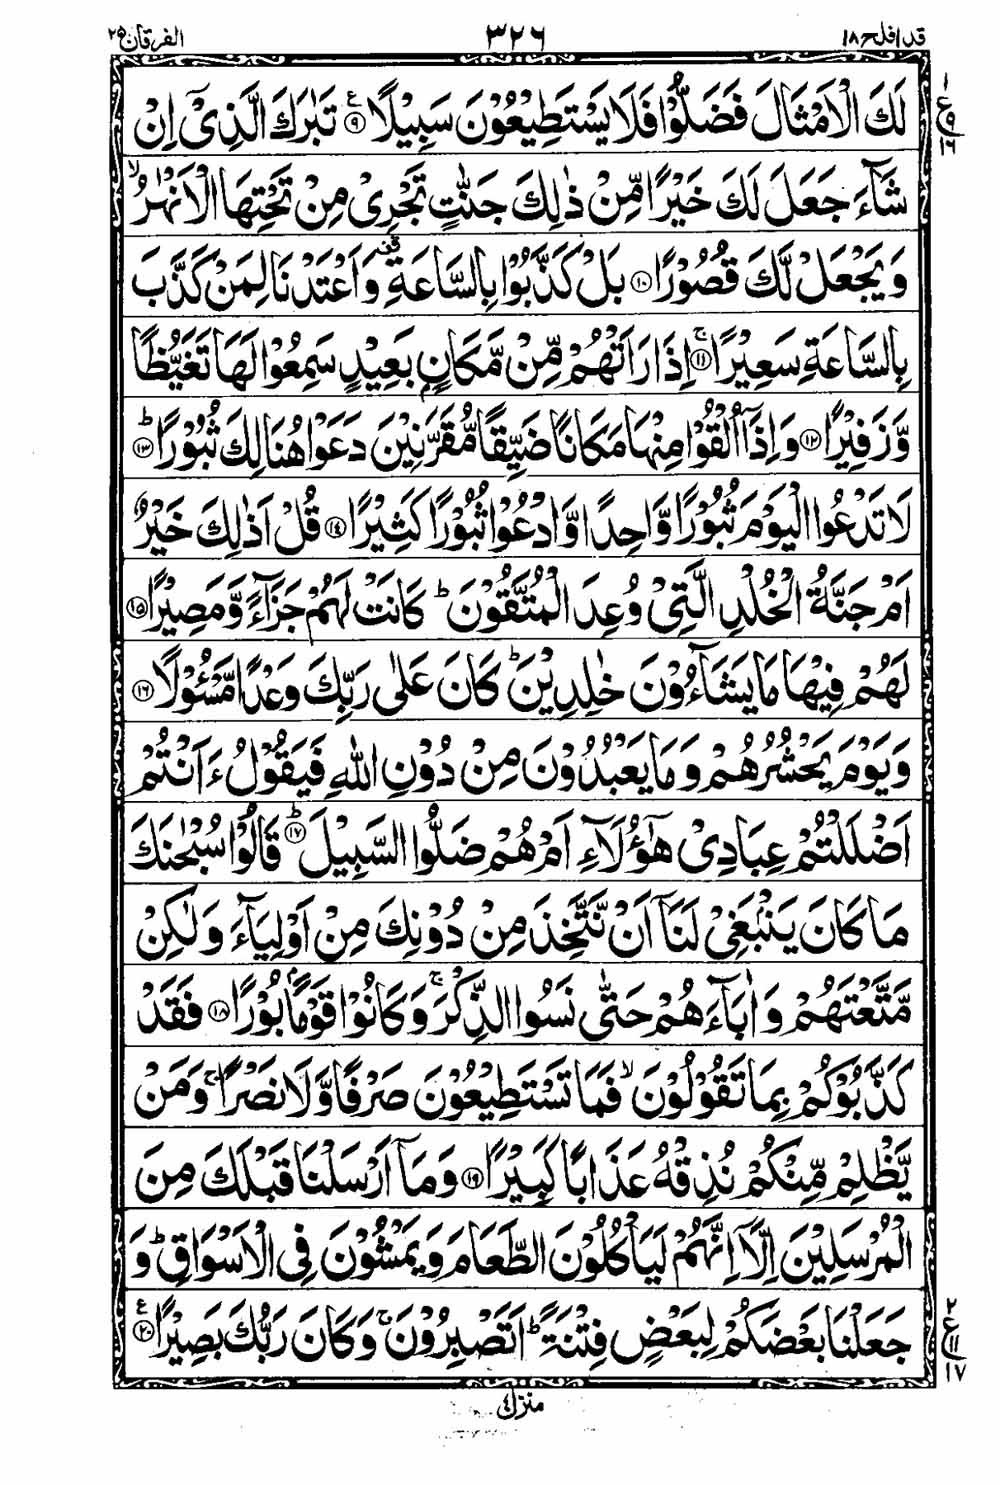 قد افلح ١٨
٣٢٦
الفرقان ٢٥
لَكَ الْاَمْثَالَ فَضَلُّوْا فَلَا يَسْتَطِيْعُوْنَ سَبِيْلًا ۹ ع تَبٰرَكَ الَّذِيْۤ اِنْ
شَآءَ جَعَلَ لَكَ خَيْرًا مِّنْ ذٰلِكَ جَنّٰتٍ تَجْرِيْ مِنْ تَحْتِهَا الْاَنْهٰرُ ۙ
وَيَجْعَلْ لَّكَ قُصُوْرًا ۱۰ بَلْ كَذَّبُوْا بِالسَّاعَةِ قف وَاَعْتَدْنَا لِمَنْ كَذَّبَ
بِالسَّاعَةِ سَعِيْرًا ۚ ۱۱ اِذَا رَاَتْهُمْ مِّنْ مَّكَانٍۭ بَعِيْدٍ سَمِعُوْا لَهَا تَغَيُّظًا
وَّزَفِيْرًا ۱۲ وَاِذَاۤ اُلْقُوْا مِنْهَا مَكَانًا ضَيِّقًا مُّقَرَّنِيْنَ دَعَوْا هُنَالِكَ ثُبُوْرًا ؕ ۱۳
لَا تَدْعُوا الْيَوْمَ ثُبُوْرًا وَّاحِدًا وَّادْعُوْا ثُبُوْرًا كَثِيْرًا ۱۴ قُلْ اَذٰلِكَ خَيْرٌ
اَمْ جَنَّةُ الْخُلْدِ الَّتِيْ وُعِدَ الْمُتَّقُوْنَ ؕ كَانَتْ لَهُمْ جَزَآءً وَّمَصِيْرًا ۱۵
لَهُمْ فِيْهَا مَا يَشَآءُوْنَ خٰلِدِيْنَ ؕ كَانَ عَلٰى رَبِّكَ وَعْدًا مَّسْـُٔوْلًا ۱۶
وَيَوْمَ يَحْشُرُهُمْ وَمَا يَعْبُدُوْنَ مِنْ دُوْنِ اللّٰهِ فَيَقُوْلُ ءَاَنْتُمْ
اَضْلَلْتُمْ عِبَادِيْ هٰۤؤُلَآءِ اَمْ هُمْ ضَلُّوا السَّبِيْلَ ؕ ۱۷ قَالُوْا سُبْحٰنَكَ
مَا كَانَ يَنْۢبَغِيْ لَنَاۤ اَنْ نَّتَّخِذَ مِنْ دُوْنِكَ مِنْ اَوْلِيَآءَ وَلٰكِنْ
مَّتَّعْتَهُمْ وَاٰبَآءَهُمْ حَتّٰى نَسُوا الذِّكْرَ ۚ وَكَانُوْا قَوْمًۢا بُوْرًا ۱۸ فَقَدْ
كَذَّبُوْكُمْ بِمَا تَقُوْلُوْنَ ۙ فَمَا تَسْتَطِيْعُوْنَ صَرْفًا وَّلَا نَصْرًا ۚ وَمَنْ
يَّظْلِمْ مِّنْكُمْ نُذِقْهُ عَذَابًا كَبِيْرًا ۱۹ وَمَاۤ اَرْسَلْنَا قَبْلَكَ مِنَ
الْمُرْسَلِيْنَ اِلَّاۤ اِنَّهُمْ لَيَاْكُلُوْنَ الطَّعَامَ وَيَمْشُوْنَ فِي الْاَسْوَاقِ ؕ وَ
جَعَلْنَا بَعْضَكُمْ لِبَعْضٍ فِتْنَةً ؕ اَتَصْبِرُوْنَ ۚ وَكَانَ رَبُّكَ بَصِيْرًا ۲۰ ع
١
ع ٩
١٦
٢
ع ١١
١٧
منزل ٤